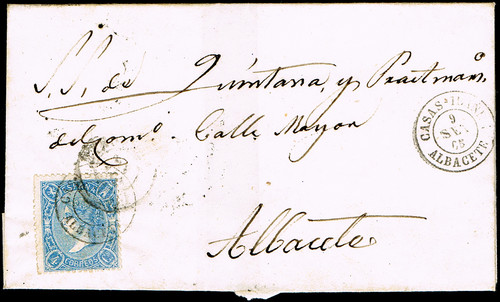 S.S. de Quintana y
del Com.º Calle Mayor
Albacete
CASAS-IBAÑEZ
9
SET
65
ALBACETE
CORREOS